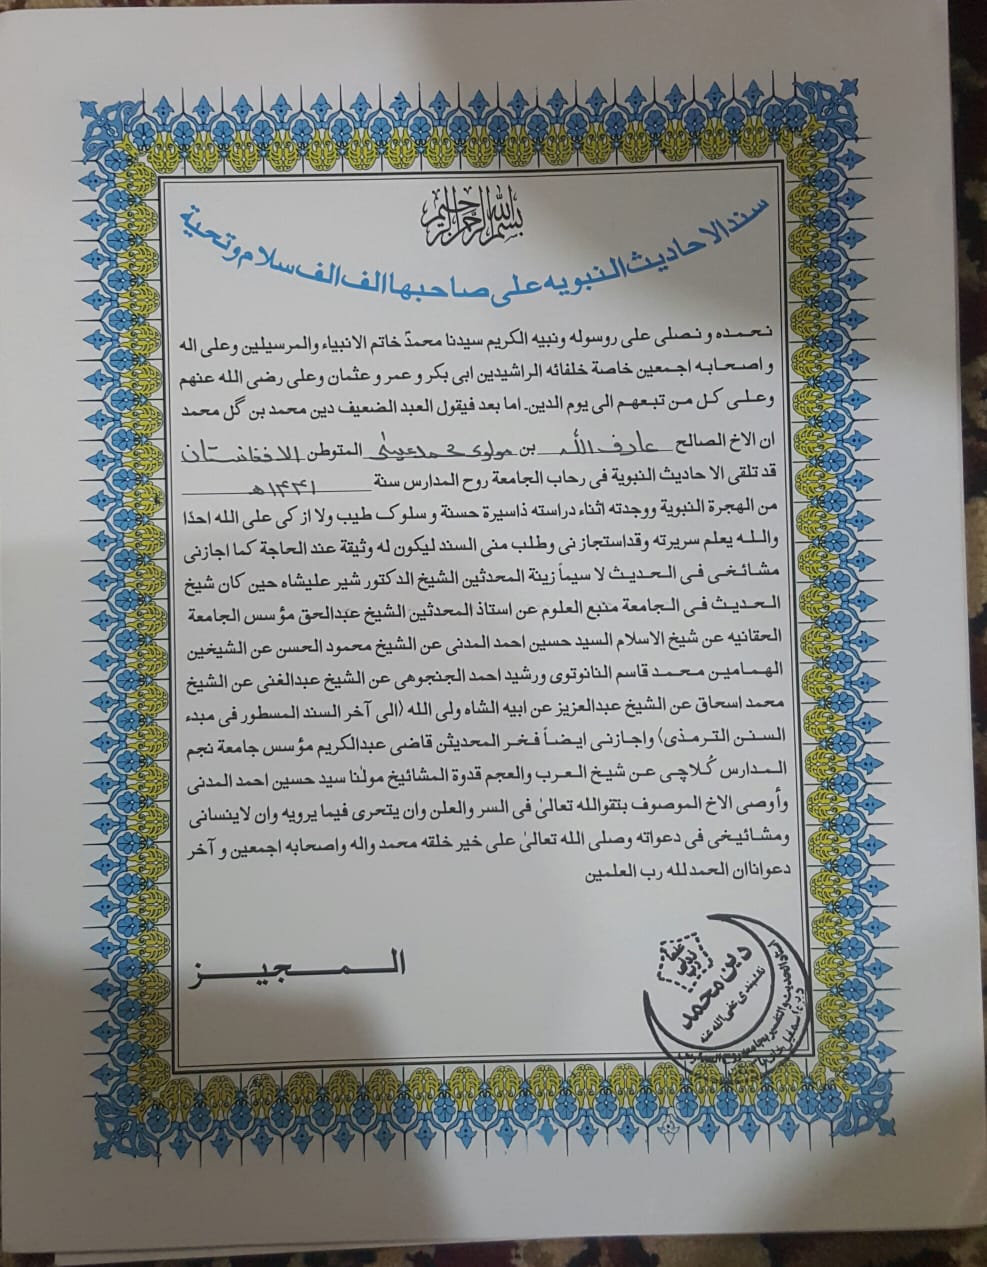 بسم الله الرحمن الرحيم
سند الاحاديث النبويه على صاحبها الف الف سلام وتحية
نحمده و نصلى على روسوله ونبيه الكريم سيدنا محمدّ خاتم الانبياء والمرسيلين وعلى اله
و اصحابه اجمعين خاصة خلفائه الراشيدين ابى بكر و عمر و عثمان وعلى رضى الله عنهم
وعلى كل من تبعهم الى يوم الدين۔ اما بعد فيقول العبد الضعيف دين محمد بن گل محمد
ان الاخ الصالح عارف الله بن مولوى محمد عيسىٰ المتوطن الافغانستان
قد تلقى الا حاديث النبوية فى رحاب الجامعة روح المدارس سنة ۱۴۴۱ھ
من الهجرة النبوية ووجدته اثناء دراسته ذاسيرة حسنة و سلوك طيب ولا از كى على الله احدًا
والله يعلم سريرته وقداستجاز نى وطلب منى السند ليكون له وثيقة عند الحاجة كما اجازنى
مشائخى فى الحديث لا سيماً زينة المحدثين الشيخ الدكتور شير عليشاه حين كان شيخ
الحديث فى الجامعة منبع العلوم عن استاذ المحدثين الشيخ عبدالحق مؤسس الجامعة
الحقانيه عن شيخ الاسلام السيد حسين احمد المدنى عن الشيخ محمود الحسن عن الشيخين
الهمامين محمد قاسم النانوتوى ورشيد احمد الجنجوهى عن الشيخ عبدالغنى عن الشيخ
محمد اسحاق عن الشيخ عبدالعزيز عن ابيه الشاه ولى الله (الى آخر السند المسطور فى مبدء
السنن الترمذى) واجازنى ايضاً فخر المحديثن قاضى عبدالكريم مؤسس جامعة نجم
المدارس كُلاچى عن شيخ العرب والعجم قدوة المشائيخ مولٰنا سيد حسين احمد المدنى
وأوصى الاخ الموصوف بتقوالله تعالىٰ فى السر والعلن وان يتحرى فيما يرويه وان لاينسانى
ومشائيخى فى دعواته وصلى الله تعالىٰ على خير خلقه محمد واله واصحابه اجمعين و آخر
دعواناان الحمد لله رب العلمين
المجيز
دين محمد
نقشبندى عفى الله عنه